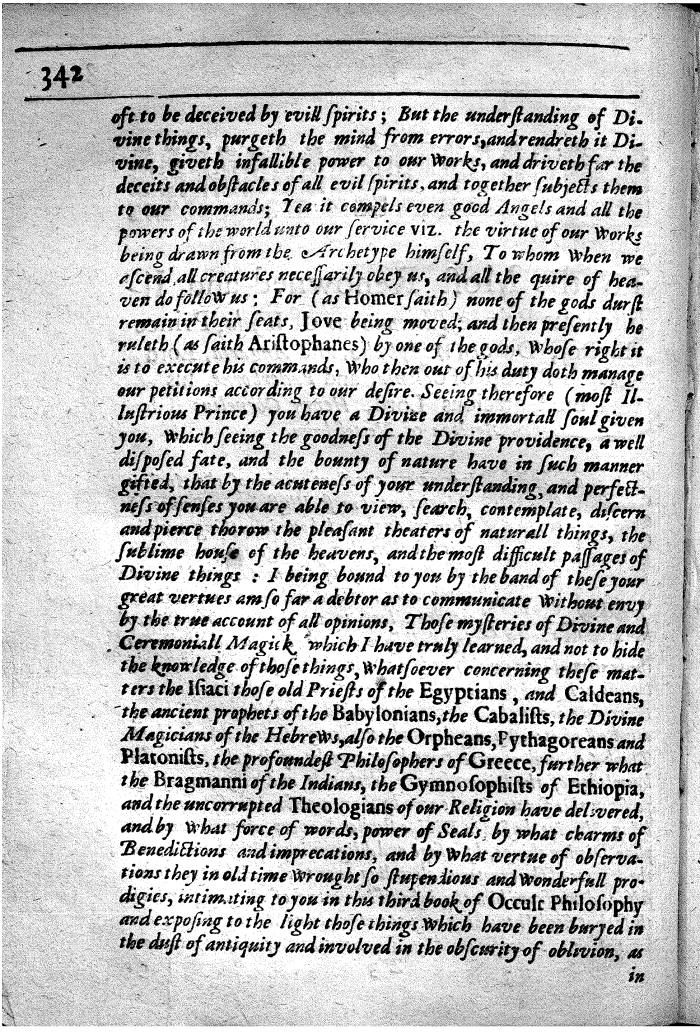 342
oft to be deceived by evill ſpirits; But the underſtanding of Di-
vine things, purgeth the mind from errors, and rendreth it Di-
vine, giveth infallible power to our Works, and driveth far the
deceits and obſtacles of all evil ſpirits, and together ſubjects them
to our commands; Yea it compels even good Angels and all the
powers of the world unto our ſervice viz. the virtue of our Works
being drawn from the Archetype himſelf, To whom When we
aſcend all creatures neceſſarily obey us, and all the quire of hea-
ven do follow us: For (as Homer ſaith) none of the gods durſt
remain in their ſeats, Jove being moved; and then preſently he
ruleth (as ſaith Ariſtophanes) by one of the gods, Whoſe right it
is to execute his commands, Who then out of his duty doth manage
our petitions according to our deſire. Seeing therefore (moſt Il-
luſtrious Prince) you have a Divine and immortall ſoul given
you, Which ſeeing the goodneſs of the Divine providence, a well
diſpoſed fate, and the bounty of nature have in ſuch manner
gifted, that by the acuteneſs of your underſtanding, and perfect-
neſs of ſenſes you are able to view, ſearch, contemplate, diſcern
and pierce thorow the pleaſant theaters of naturall things, the
ſublime houſe of the heavens, and the moſt difficult paſſages of
Divine things : I being bound to you by the band of theſe your
great vertues am ſo far a debtor as to communicate Without envy
by the true account of all opinions, Thoſe myſteries of Divine and
Ceremoniall Magick which I have truly learned, and not to hide
the knowledge of thoſe things, Whatſoever concerning theſe mat-
ters the Iſiaci thoſe old Prieſts of the Egyptians, and Caldeans,
the ancient prophets of the Babylonians, the Cabaliſts, the Divine
Magicians of the Hebrews, alſo the Orpheans, Pythagoreans and
Platoniſts, the profoundeſt Philoſophers of Greece, further what
the Bragmanni of the Indians, the Gymnoſophiſts of Ethiopia,
and the uncorrupted Theologians of our Religion have delivered,
and by What force of words, power of Seals, by what charms of
Benedictions and imprecations, and by What vertue of obſerva-
tions they in old time Wrought ſo ſtupendious and Wonderfull pro-
digies, intimating to you in this third book of Occult Philoſophy
and expoſing to the light thoſe things Which have been buryed in
the duſt of antiquity and involved in the obſcurity of oblivion, as
in